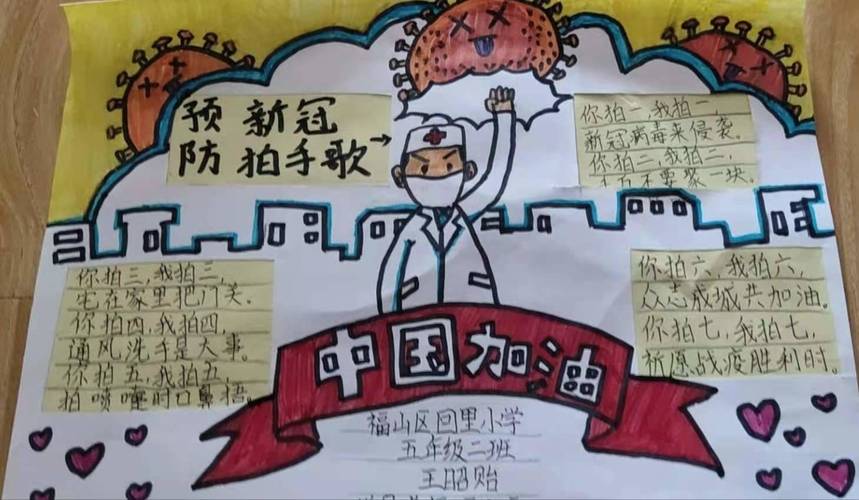 预新冠
防拍手歌
你拍一,我拍一,
新冠病毒来侵袭。
你拍二,我拍二,
不要聚一块。
你拍三,我拍三,
宅在家里把门关。
你拍四,我拍四,
通风洗手是大事。
你拍五,我拍五,
拍喷嚏时口鼻捂。
你拍六,我拍六,
众志成城共加油。
你拍七,我拍七,
祈愿战疫胜利时。
中国加油
福山区回里小学
五年级二班
王昭贻